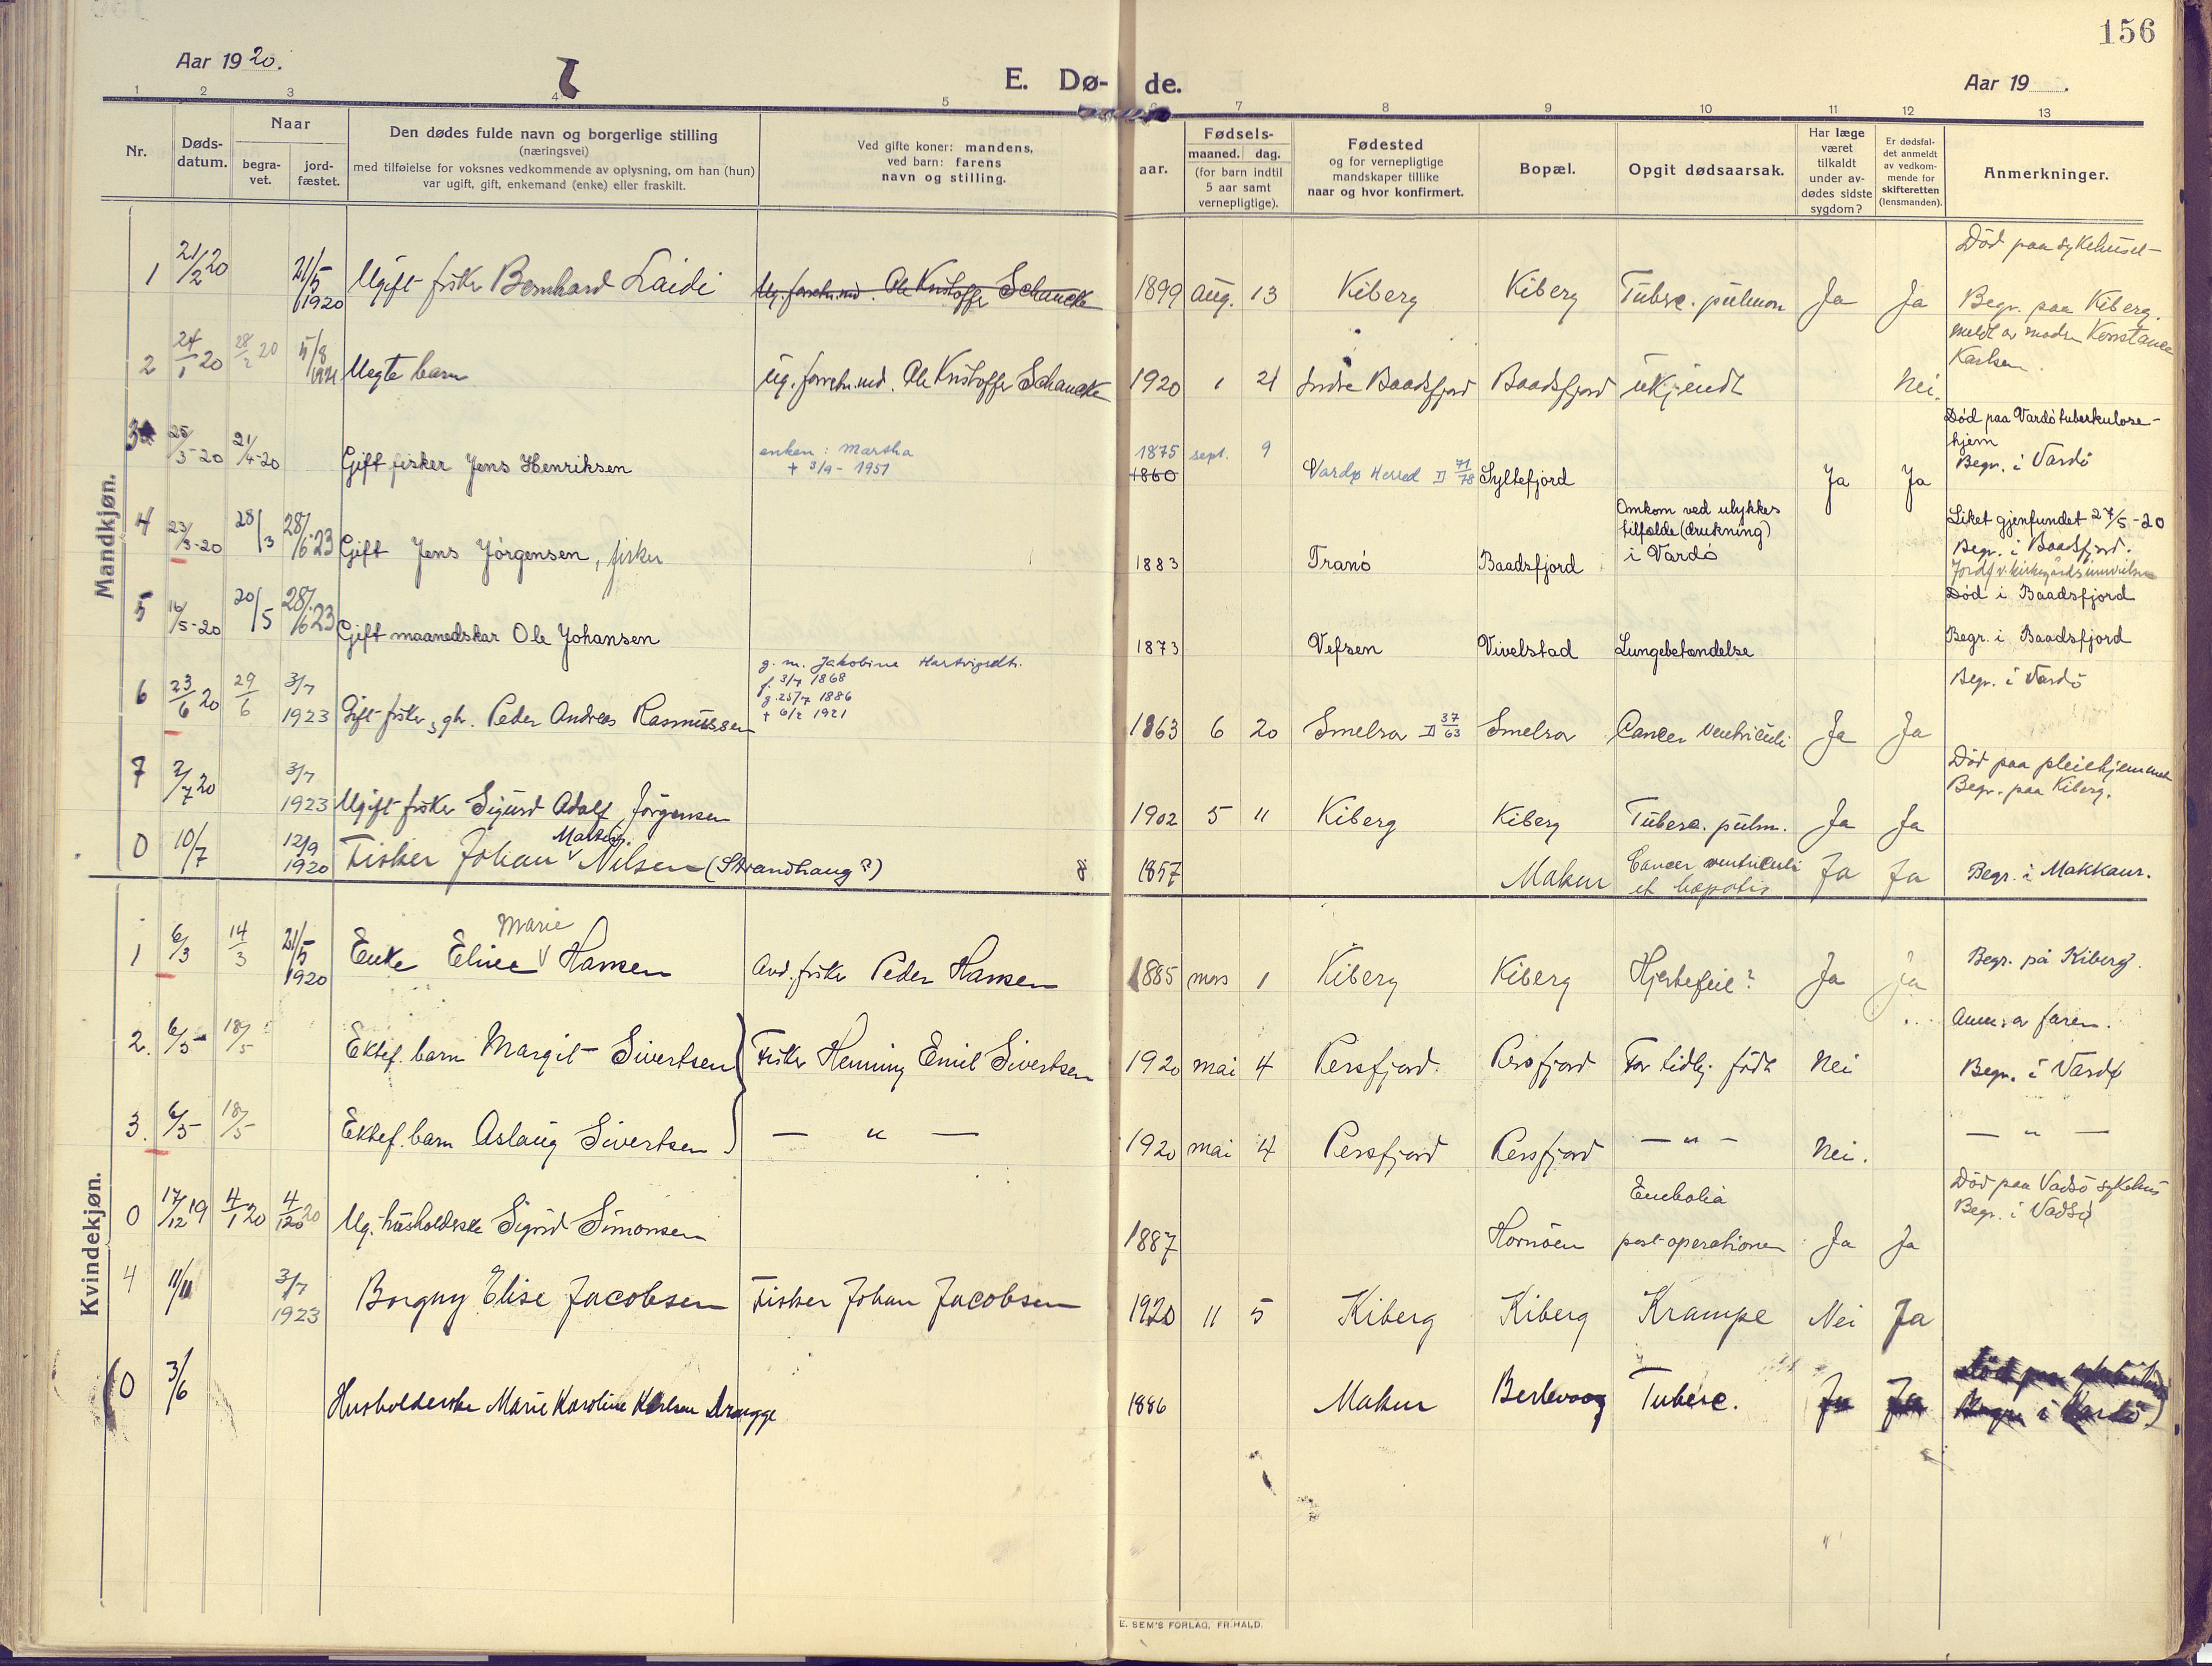 156
Aar 1920.
E. Dø- de.
Aar 19 .
1 2 3 4 5 6 7 8 9 10 11 12 13
Nr.
Døds-
datum.
Naar
begra-
vet.
jord-
fæstet.
Den dødes fulde navn og borgerlige stilling
(næringsvei)
med tilføielse for voksnes vedkommende av oplysning, om han (hun)
var ugift, gift, enkemand (enke) eller fraskilt.
Ved gifte koner: mandens,
ved barn: farens
navn og stilling.
Fødsels-
aar.
maaned. dag.
(for barn indtil
5 aar samt
vernepligtige).
Fødested
og for vernepligtige
mandskaper tillike
naar og hvor konfirmert.
Bopæl.
Opgit dødsaarsak.
Har læge
været
tilkaldt
under av-
dødes sidste
sygdom?
Er dødsfal-
det anmeldt
av vedkom-
mende for
skifteretten
(lensmanden).
Anmerkninger.
Mandkjøn.
Død paa sykehuset
1 21/2 20 21/5 1920 Ugift fisker Bernhard Laidi Ug. forretn.md. Ole Kristoffer Schancke 1899 aug. 13 Kiberg Kiberg Tuberc. pulmon Ja Ja Begr. paa Kiberg.
meldt av moder Konstance
Karlsen
2 24/1 20 28/2 20 5/8 1921 Uegte barn ug. forretn.md. Ole Kristoffer Schancke 1920 1 21 Indre Baadsfjord Baadsfjord ukjendt Nei.
Død paa Vardö tuberkulose-
hjem
Begr. i Vardö
3 25/3-20 21/4-20 Gift fisker Jens Henriksen enken: Martha
+ 3/9 - 1951
1875 sept. 9
1860 Vardø Herred II 71/78 Syltefjord Ja Ja
Omkom ved ulykkes
tilfælde (drukning)
i Vardö
Liket gjenfundet 27/5-20
Begr. i Baadsfjord.
4 23/3-20 28/3 28/6-23 Gift Jens Jörgensen, fisker 1883 Tranö Baadsfjord
Jordf. v. kirkegårdsinnvielse
Död i Baadsfjord
5 16/5-20 20/5 28/6 23 Gift maanedskar Ole Johansen 1873 Vefsen Vivelstad Lungebetændelse Begr. i Baadsfjord
g. m. Jakobine Hartvigsdtr.
f. 3/7 1868
g. 25/7 1886
+ 6/2 1921
6 23/6 20 29/6 3/7 1923 Gift fisker, gbr. Peder Andreas Rasmussen 1863 6 20 Smelror II 37/63 Smelror Cancer ventriculi Ja Ja Begr. i Vardö
7 2/7 20 3/7 1923 Ugift fisker Sigurd Adolf Jörgensen 1902 5 11 Kiberg Kiberg Tuberc. pulm. Ja Ja Död paa pleiehjemmet
Begr. paa Kiberg.
0 10/7 12/9 1920 Fisker Johan Nilsen (Strandhaug?) 8 1857 Makur Cancer ventriculi
et hepatis Ja Ja Begr. i Makkaur.
Kvindekjøn.
1 6/3 14/3 21/5 1920 Enke Eline Marie Hansen Avd. fisker Peder Hansen 1885 mars 1 Kiberg Kiberg Hjertefeil? Ja Ja Begr. på Kiberg.
Anm. av faren.
2. 6/5 18/5 Ektef. barn Margit Sivertsen Fisker Henning Emil Sivertsen 1920 mai 4 Persfjord. Persfjord For tidlig födt Nei Begr. i Vardø
3. 6/5 18/5 Ektef. barn Aslaug Sivertsen — " — 1920 mai 4 Persfjord Persfjord — " — Nei. — " —
0 17/12 19 4/1 20 4/1 20 Ug. husholderske Sigrid Simonsen 1887 Hornöen Embolia
post operationem Ja Ja Död paa Vadsö sykehus
Begr. i Vadsø
4 11/11 3/7 1923 Borgny Elise Jacobsen Fisker Johan Jacobsen 1920 11 5 Kiberg Kiberg Krampe Nei Ja
(0 3/6 Husholderske Marie Karoline Karlsen 1886 Makur Berlevaag Tuberc. Ja Ja Begr. i Vardö)
E. SEM'S FORLAG, FR.HALD.